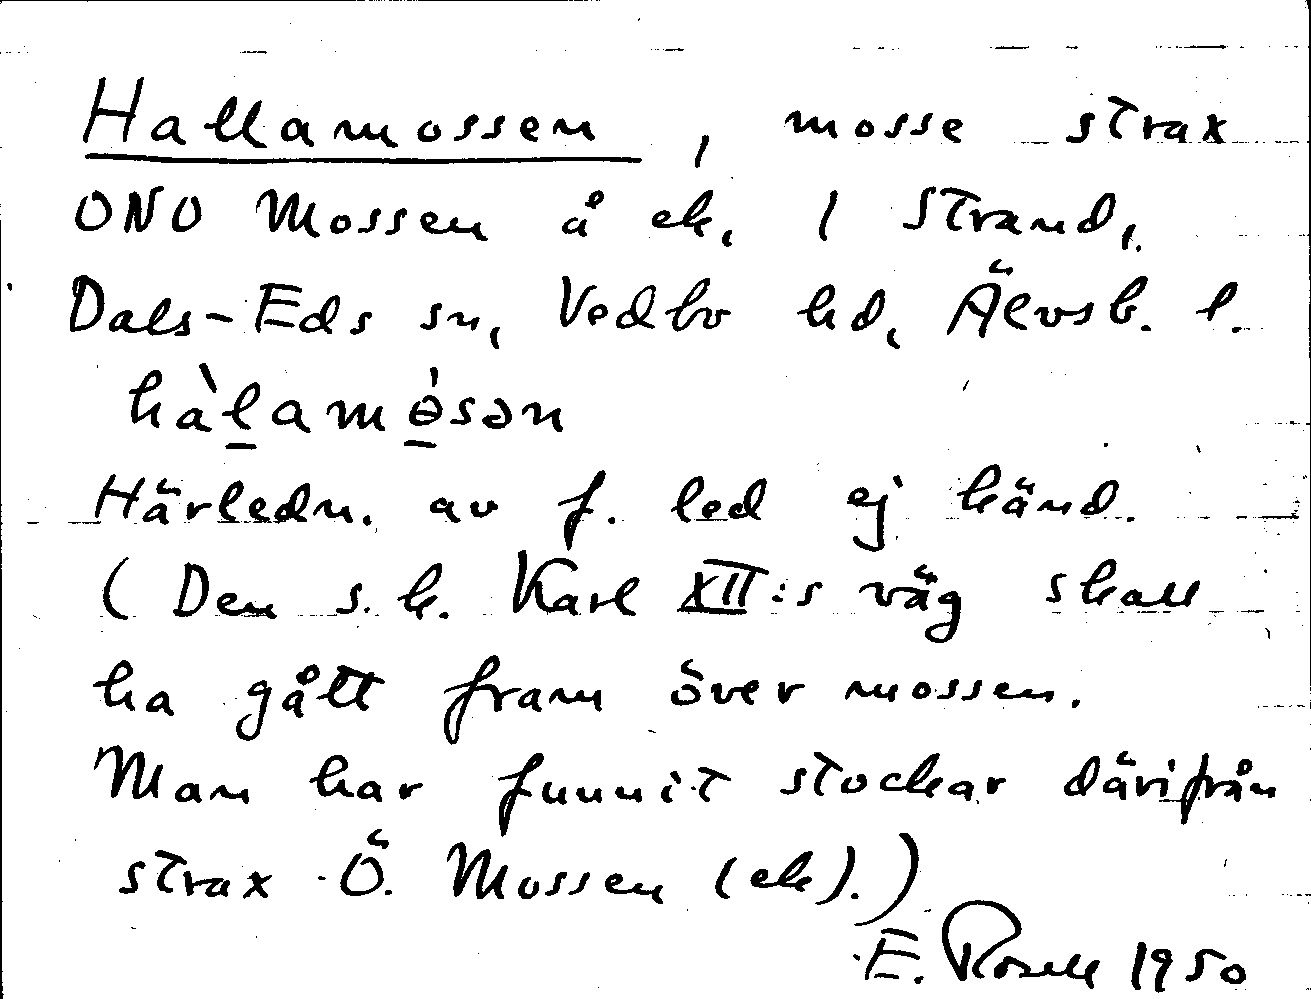 Hallamossen, mosse strax
ONO Mossen å ek. 1 Strand,
Dals-Eds sn, Vedbo hd, Älvsb. l.
hàlamósən
Härledn. av f. led ej känd.
(Den s.k. Karl XII:s väg skall
ha gått fram över mossen.
Man har funnit stockar därifrån
strax Ö. Mossen (ek).)
E. Rosell 1950